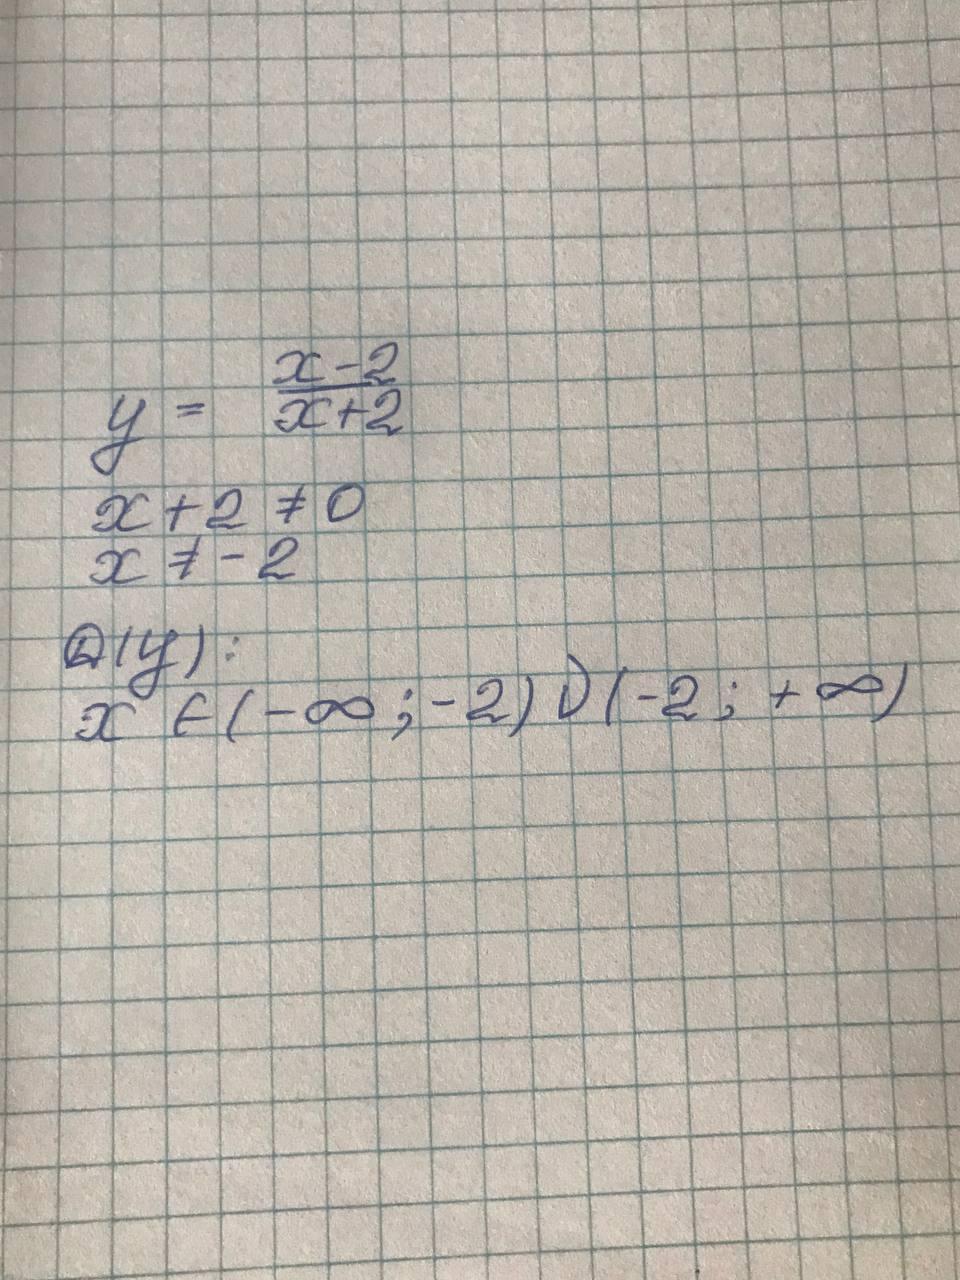 y = x-2/x+2
x+2 ≠ 0
x ≠ -2
D(y):
x ∈ (-∞; -2) ∪ (-2; +∞)